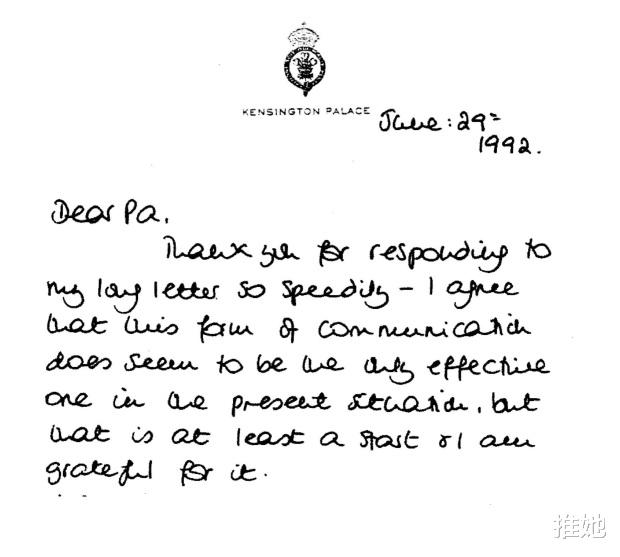 KENSINGTON PALACE
June: 29th
1992.
Dear Pa,
Thank you for responding to
my long letter so speedily - I agree
that this form of communication
does seem to be the only effective
one in the present situation, but
that is at least a start & I am
grateful for it.
推她